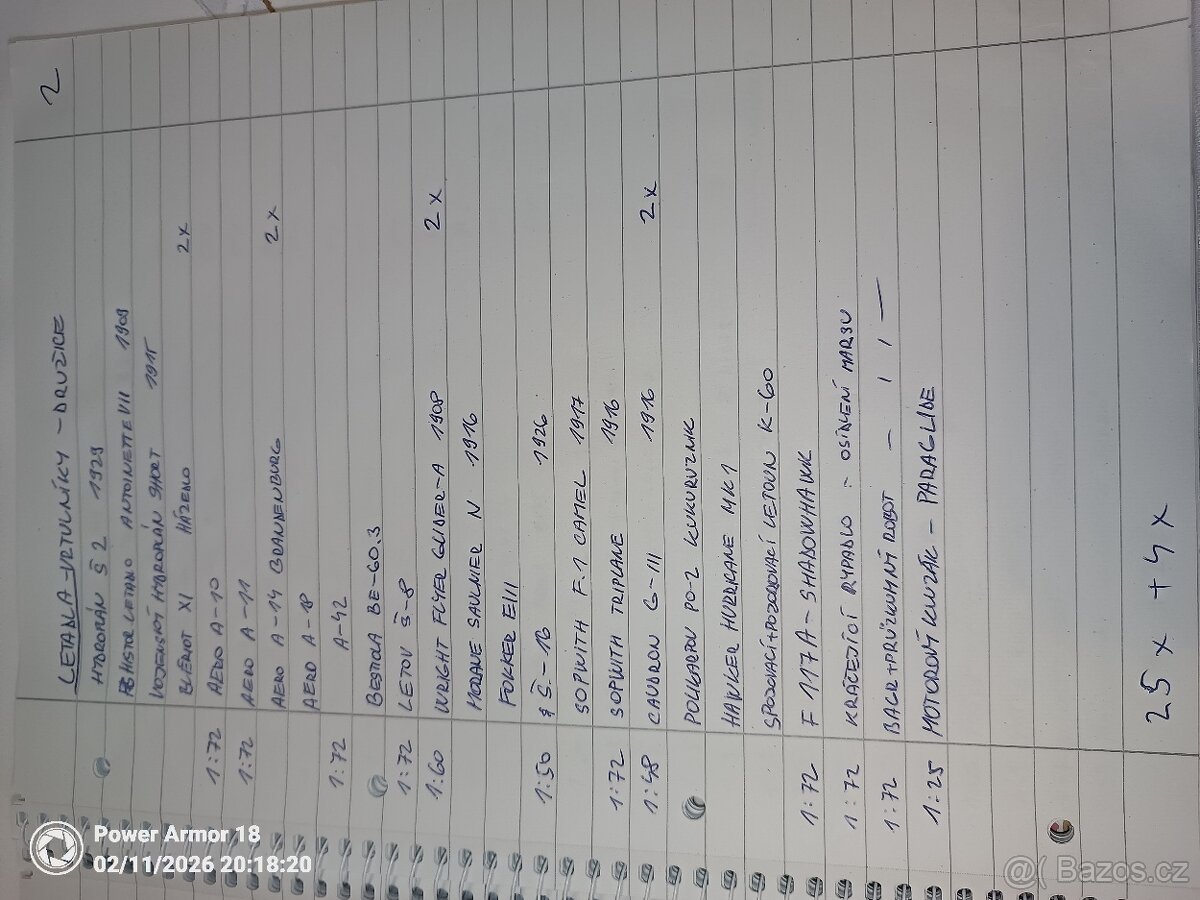 2
LETADLA - VRTULNÍKY - DRUŽICE
HYDROPLÁN Š 2 1929
HISTOR LETADLO ANTOINETTE VII 1909
VOJENSKÝ HYDROPLÁN SHORT 1915
BLÉRIOT XI HÁZEDLO 2x
1:72 AERO A-10
1:72 AERO A-11
AERO A-14 BRANDENBURG 2x
AERO A-18
1:72 A-42
BESTIOLA BE-60.3
1:72 LETOV Š-8
1:60 WRIGHT FLYER GLIDER-A 1908 2x
MORANE SAULNIER N 1916
FOKKER EIII
1:50 Š-16 1926
SOPWITH F.1 CAMEL 1917
1:72 SOPWITH TRIPLANE 1916
1:48 CAUDRON G-III 1916 2x
POLIKARPOV PO-2 KUKURUZNIK
HAWKER HURRICANE MK1
SPOJOVACÍ+POZOROVACÍ LETOUN K-60
1:72 F 117A - SHADOWHAWK
1:72 KRÁČEJÍCÍ RYPADLO - OSÍDLENÍ MARSU
1:72 BAGR+PRŮZKUMNÝ ROBOT - I I -
1:25 MOTOROVÝ KLUZÁK - PARAGLIDE
25x + 4x
Power Armor 18
02/11/2026 20:18:20
Bazos.cz